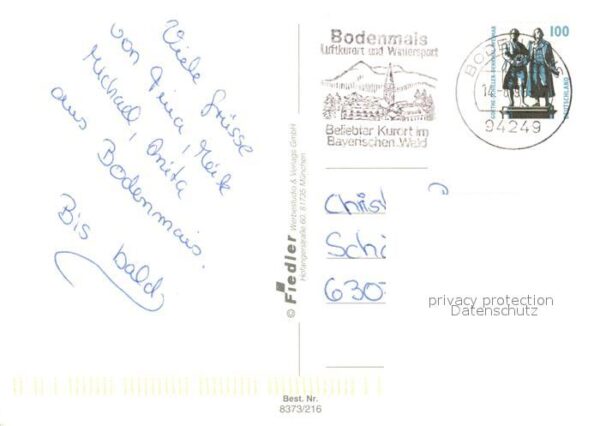 Viele Grüsse
von Tina, Meik
Michael, Anita
aus
Bodenmais.
Bis bald
Bodenmais
Luftkurort und Wintersport
Beliebter Kurort im
Bayerischen Wald
94249
100
DEUTSCHLAND
© Fiedler Werbestudio & Verlags GmbH
Hofangerstraße 60, 81735 München
Christ
Schi
630
privacy protection
Datenschutz
Best. Nr.
8373/216